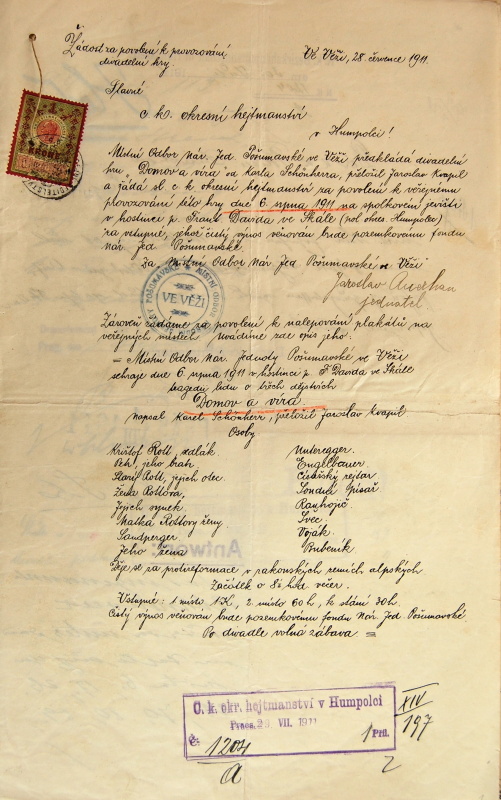 Žádost za povolení k provozování
divadelní hry
Ve Věži, 28. července 1911.
Slavné
c. k. okresní hejtmanství
v Humpolci!
Místní Odbor Nár. Jed. Pošumavské ve Věži předkládá divadelní
hru „Domov a víra" od Karla Schönherra, přeložil Jaroslav Kvapil
a žádá sl. c. k. okresní hejtmanství za povolení k veřejnému
provozování této hry dne 6. srpna 1911 na spolkovém jevišti
v hostinci p. Frant. Davida ve Skále (pol. okres. Humpolec)
za vstupné, jehož čistý výnos věnován bude pozemkovému fondu
nár. Jed. Pošumavské
Za Místní Odbor Nár. Jed. Pošumavské ve Věži
Jaroslav
jednatel.
POŠUMAVSKÉ MÍSTNÍ ODBOR
VE VĚŽI
Zároveň žádáme za povolení k nalepování plakátů na
veřejných místech, uvádíme zde opis jeho:
= Místní Odbor Nár. Jednoty Pošumavské ve Věži
sehraje dne 6. srpna 1911 v hostinci p. F. Davida ve Skále
tragedii lidu o třech dějstvích
Domov a víra.
Napsal Karel Schönherr, přeložil Jaroslav Kvapil
Osoby
Krištof Rott, sedlák Unteregger.
Petr, jeho bratr Engelbauer
Starý Rott, jejich otec. Císařský rejtar.
Žena Rottova, Písař.
Jejich synek.
Matka Rottovy ženy. Švec
Sandperger Voják.
Jeho žena Bubeník.
Děje se za protireformace v rakouských zemích alpských
Začátek o 8½ hod. večer.
Vstupné: 1 místo 1 K, 2 místo 60 h, k stání 30 h.
Čistý výnos věnován bude pozemkovému fondu Nár. Jed. Pošumavské
Po divadle volná zábava =
C. k. okr. hejtmanství v Humpolci
Praes. 29. VII. 1911
Č. 1204 1 Příl.
a
XIV
197
2